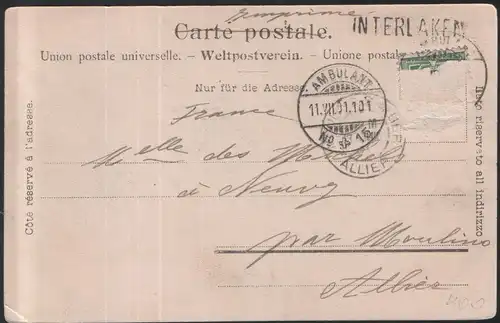 Imprimé
Carte postale.
INTERLAKEN
Union postale universelle. – Weltpostverein. – Unione postale
Nur für die Adresse
AMBULANT
11.VII.01.101
No
ALLIER
France
Côté réservé à l'adresse.
lato riservato all indirizzo
Melle des
à Neuvy
par Moulins
Allier